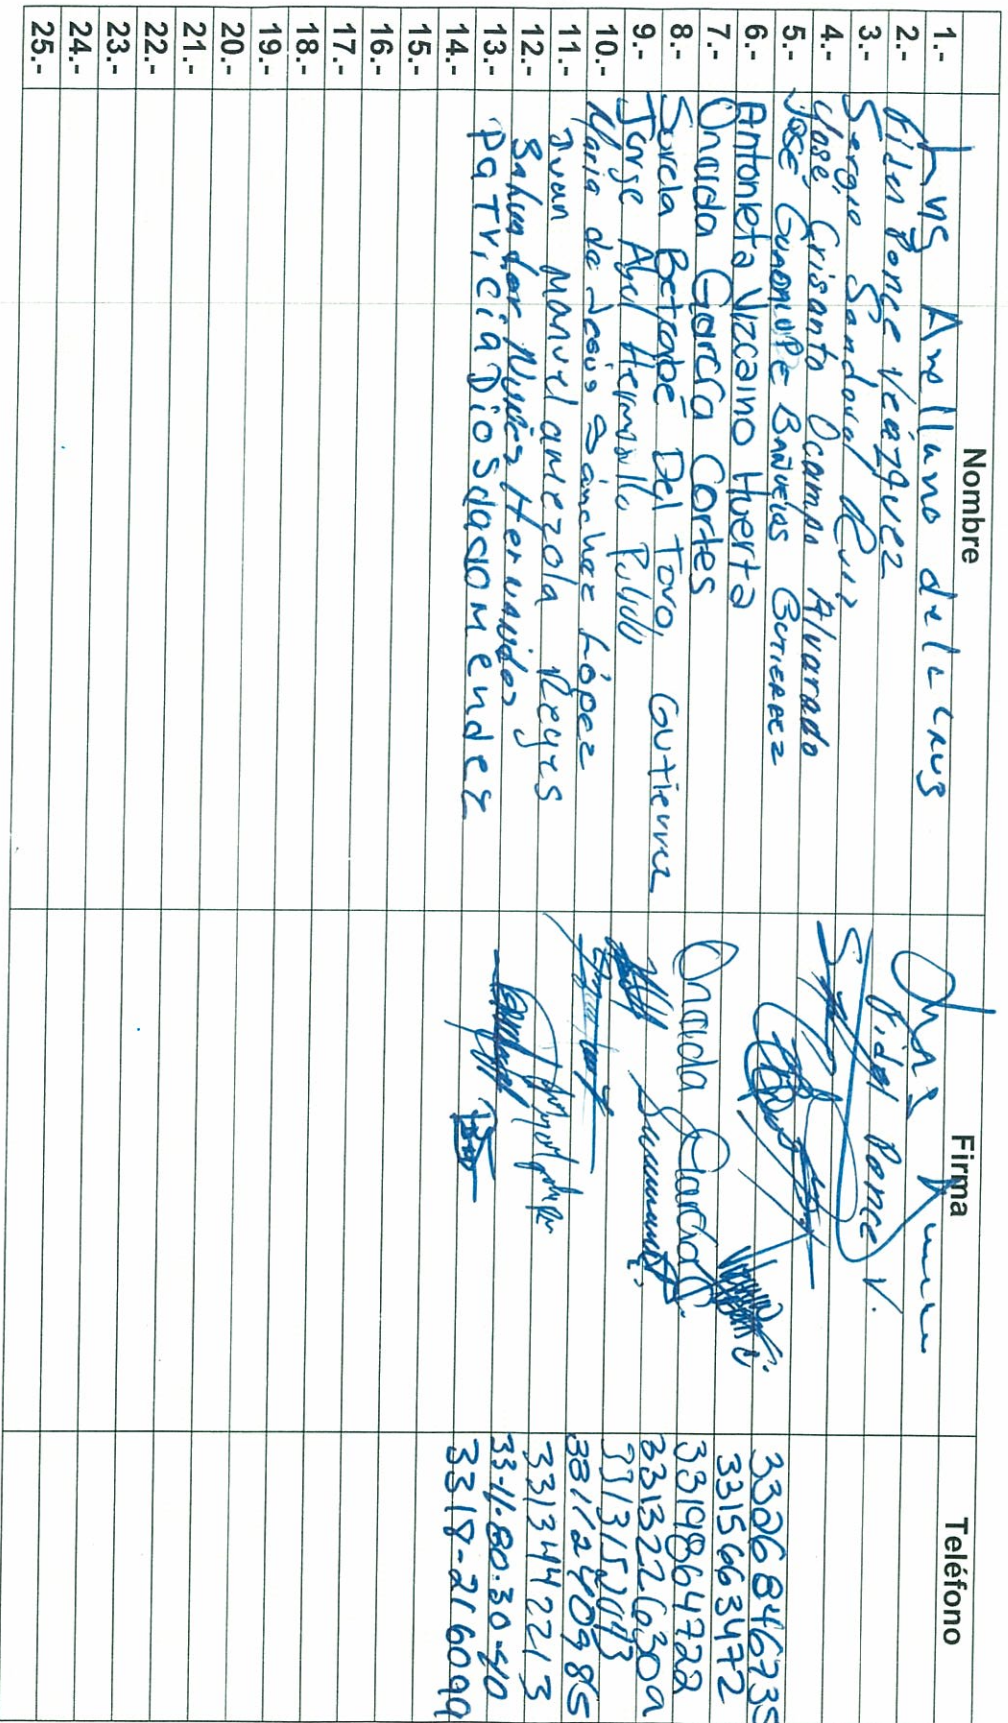 Nombre Firma Teléfono
1.- Arellano de la Cruz
2.- Fidel Ponce Veázquez Fidel Ponce V.
3.- Sergio Sandoval Ruiz
4.- José Crisanto Ocampo Alvarado
5.- José Guadalupe Bañuelos Gutierrez 3326846735
6.- Antonieta Vizcaino Huerta 3315663472
7.- Onaida García Cortes Onaida García C. 3319864728
8.- Betzabé Del Toro Gutierrez 3313226309
9.- Jorge Abel Hermosillo Pulido 3313152043
10.- Maria de Jesús Sánchez López 3811240985
11.- Juan Manuel amezola Reyes 3313442213
12.- Nuñez Hernandez 33-11-80-30-40
13.- PaTriciaDiosdadomendez 3318-216099
14.-
15.-
16.-
17.-
18.-
19.-
20.-
21.-
22.-
23.-
24.-
25.-